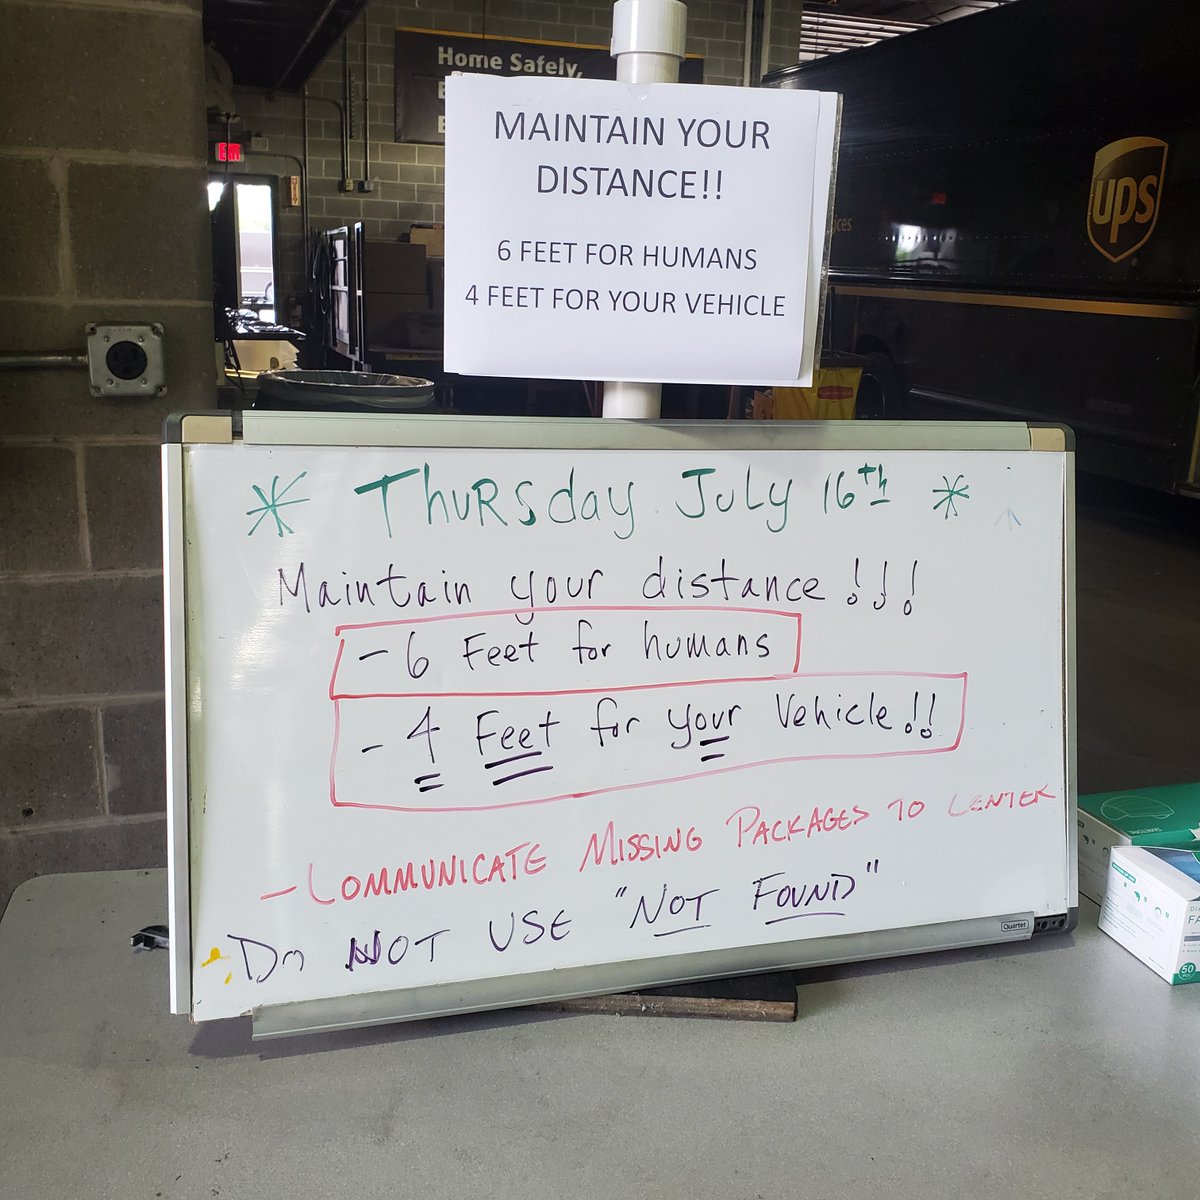 Home Safely,
EXIT
MAINTAIN YOUR
DISTANCE!!
6 FEET FOR HUMANS
4 FEET FOR YOUR VEHICLE
ups
* Thursday July 16th *
Maintain your distance!!!
- 6 Feet for humans
- 4 Feet for your Vehicle!!
- COMMUNICATE MISSING PACKAGES TO CENTER
Do NOT USE "NOT FOUND"
Quartet
50